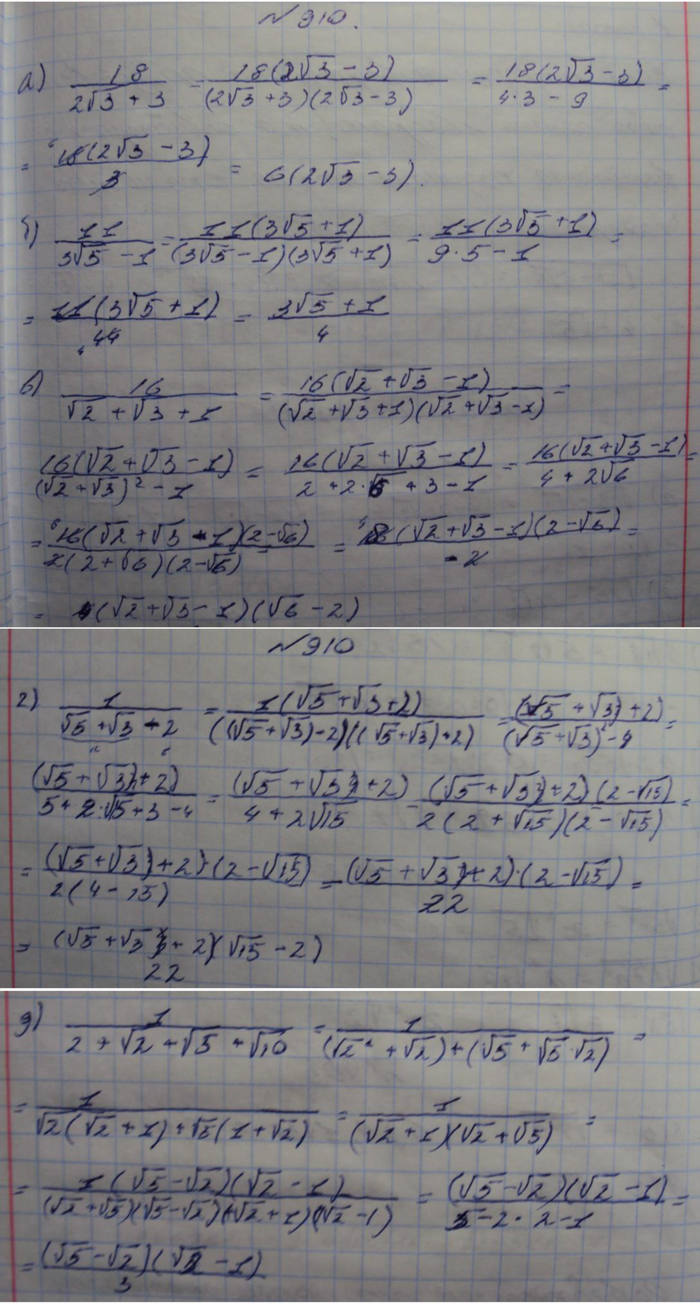 №910.
а) 18/(2√3 + 3) = 18(2√3 - 3)/((2√3 + 3)(2√3 - 3)) = 18(2√3 - 3)/(4·3 - 9) =
= 18(2√3 - 3)/3 = 6(2√3 - 3).
б) 11/(3√5 - 1) = 11(3√5 + 1)/((3√5 - 1)(3√5 + 1)) = 11(3√5 + 1)/(9·5 - 1) =
= 11(3√5 + 1)/44 = (3√5 + 1)/4
в) 16/(√2 + √3 + 1) = 16(√2 + √3 - 1)/((√2 + √3 + 1)(√2 + √3 - 1)) =
16(√2 + √3 - 1)/((√2 + √3)² - 1) = 16(√2 + √3 - 1)/(2 + 2·√6 + 3 - 1) = 16(√2 + √3 - 1)/(4 + 2√6) =
= 16(√2 + √3 - 1)(2 - √6)/(2(2 + √6)(2 - √6)) = 8(√2 + √3 - 1)(2 - √6)/(-2) =
= 4(√2 + √3 - 1)(√6 - 2)
№910
г) 1/(√5 + √3 - 2) = 1(√5 + √3 + 2)/(((√5 + √3) - 2)((√5 + √3) + 2)) = ((√5 + √3) + 2)/((√5 + √3)² - 4) =
((√5 + √3) + 2)/(5 + 2·√15 + 3 - 4) = ((√5 + √3) + 2)/(4 + 2√15) = ((√5 + √3) + 2)(2 - √15)/(2(2 + √15)(2 - √15)) =
= ((√5 + √3) + 2)·(2 - √15)/(2(4 - 15)) = -((√5 + √3) + 2)·(2 - √15)/22 =
= (√5 + √3 + 2)(√15 - 2)/22
д) 1/(2 + √2 + √5 + √10) = 1/((√2² + √2) + (√5 + √5·√2)) =
= 1/(√2(√2 + 1) + √5(1 + √2)) = 1/((√2 + 1)(√2 + √5)) =
= 1(√5 - √2)(√2 - 1)/((√2 + √5)(√5 - √2)(√2 + 1)(√2 - 1)) = (√5 - √2)(√2 - 1)/(5 - 2·2 - 1) =
= (√5 - √2)(√2 - 1)/3